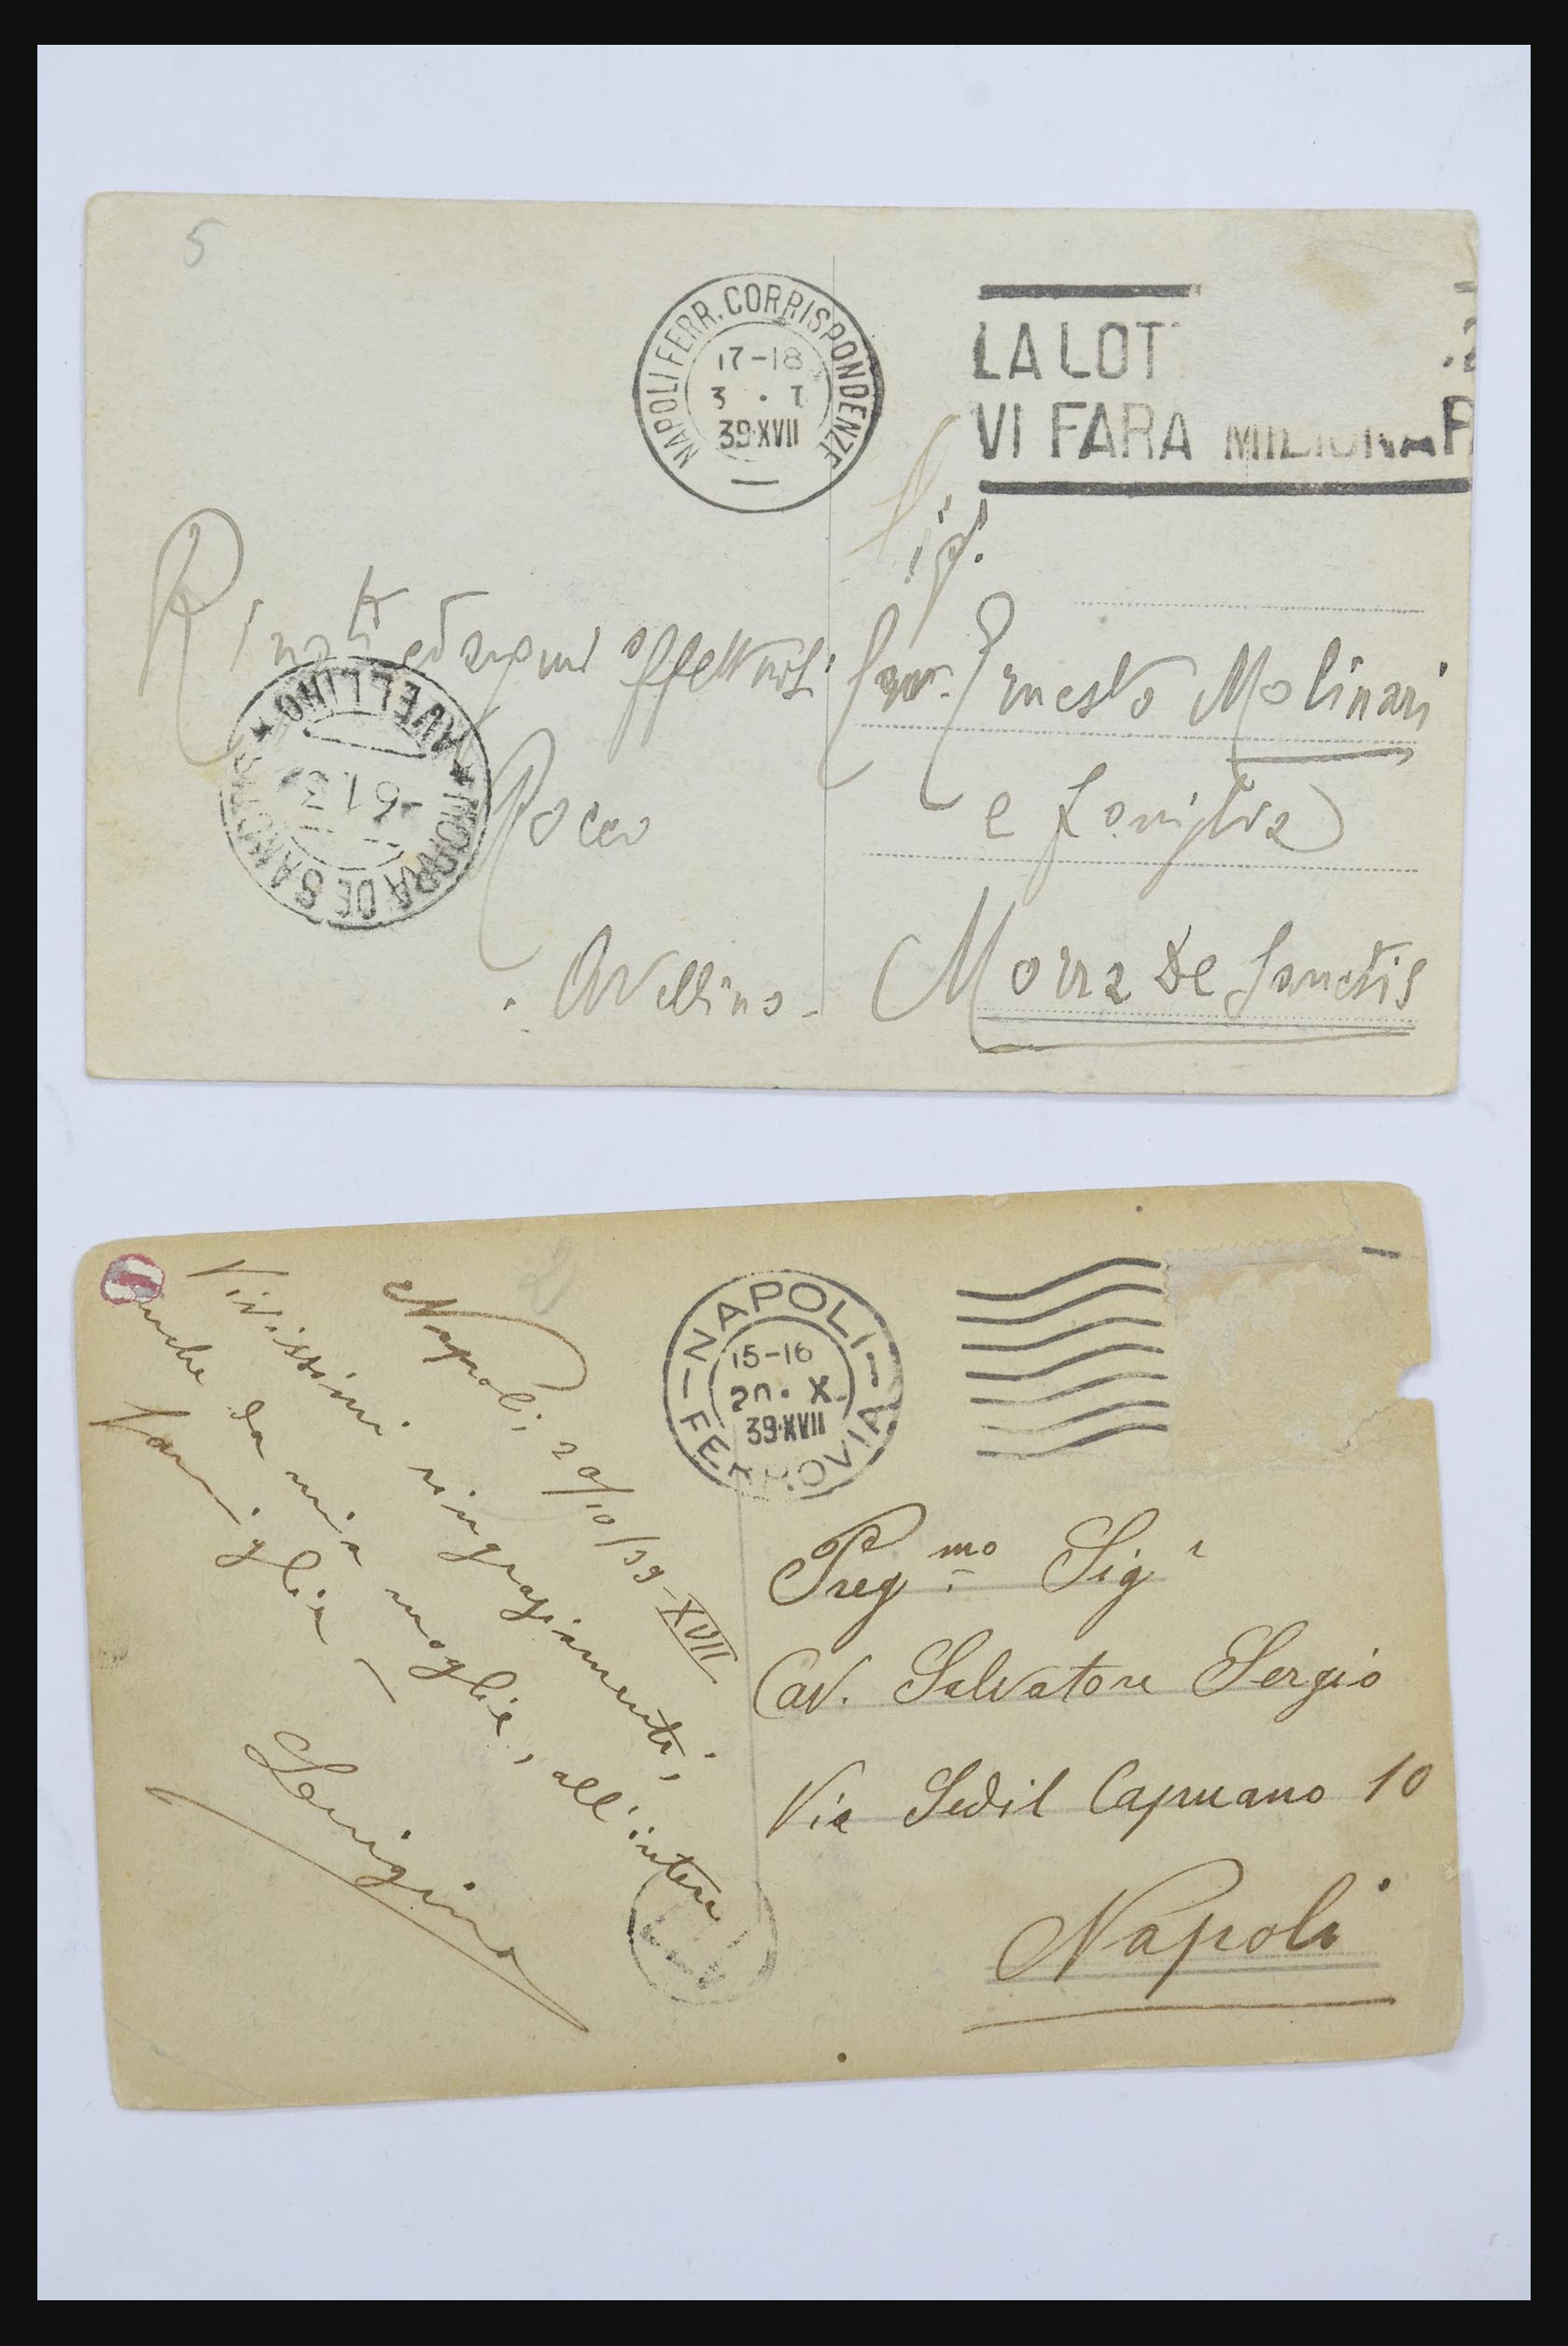 5
NAPOLI FERR. CORRISPONDENZE
17-18
3 . I
39 XVII
LA LOT
VI FARA MILIONAR
Sig.
Cav. Ernesto Molinari
e famiglia
Morra De Sanctis
. Avellino -
affettuosi
Rocco
AVELLINO
-6 1 3
MORRA DE SANCTIS
2
NAPOLI
15-16
20 . X
39 XVII
FERROVIA
Napoli, 20/10/39-XVII
Vivissimi ringraziamenti,
anche da mia moglie, all'intera
famiglia
Preg.mo Sigr
Cav. Salvatore Sergio
Via Sedil Capuano 10
Napoli